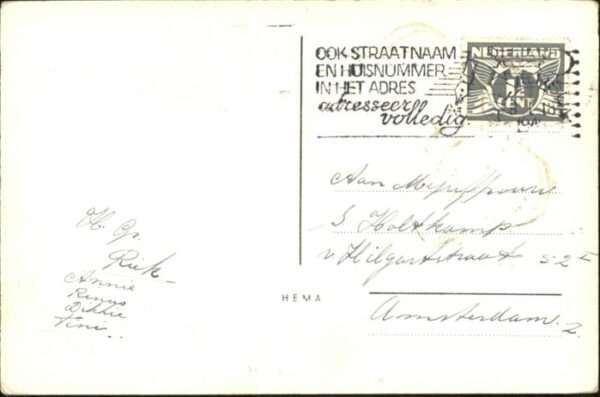 OOK STRAATNAAM
EN HUISNUMMER
IN HET ADRES
adresseer
volledig
NEDERLAND
CENT
Aan Mej
S Holtkamp
v Hilgartstraat 52 I
Amsterdam. Z.
H. Gr.
Riek
Annie
Rinus
Dikkie
Tini
HEMA